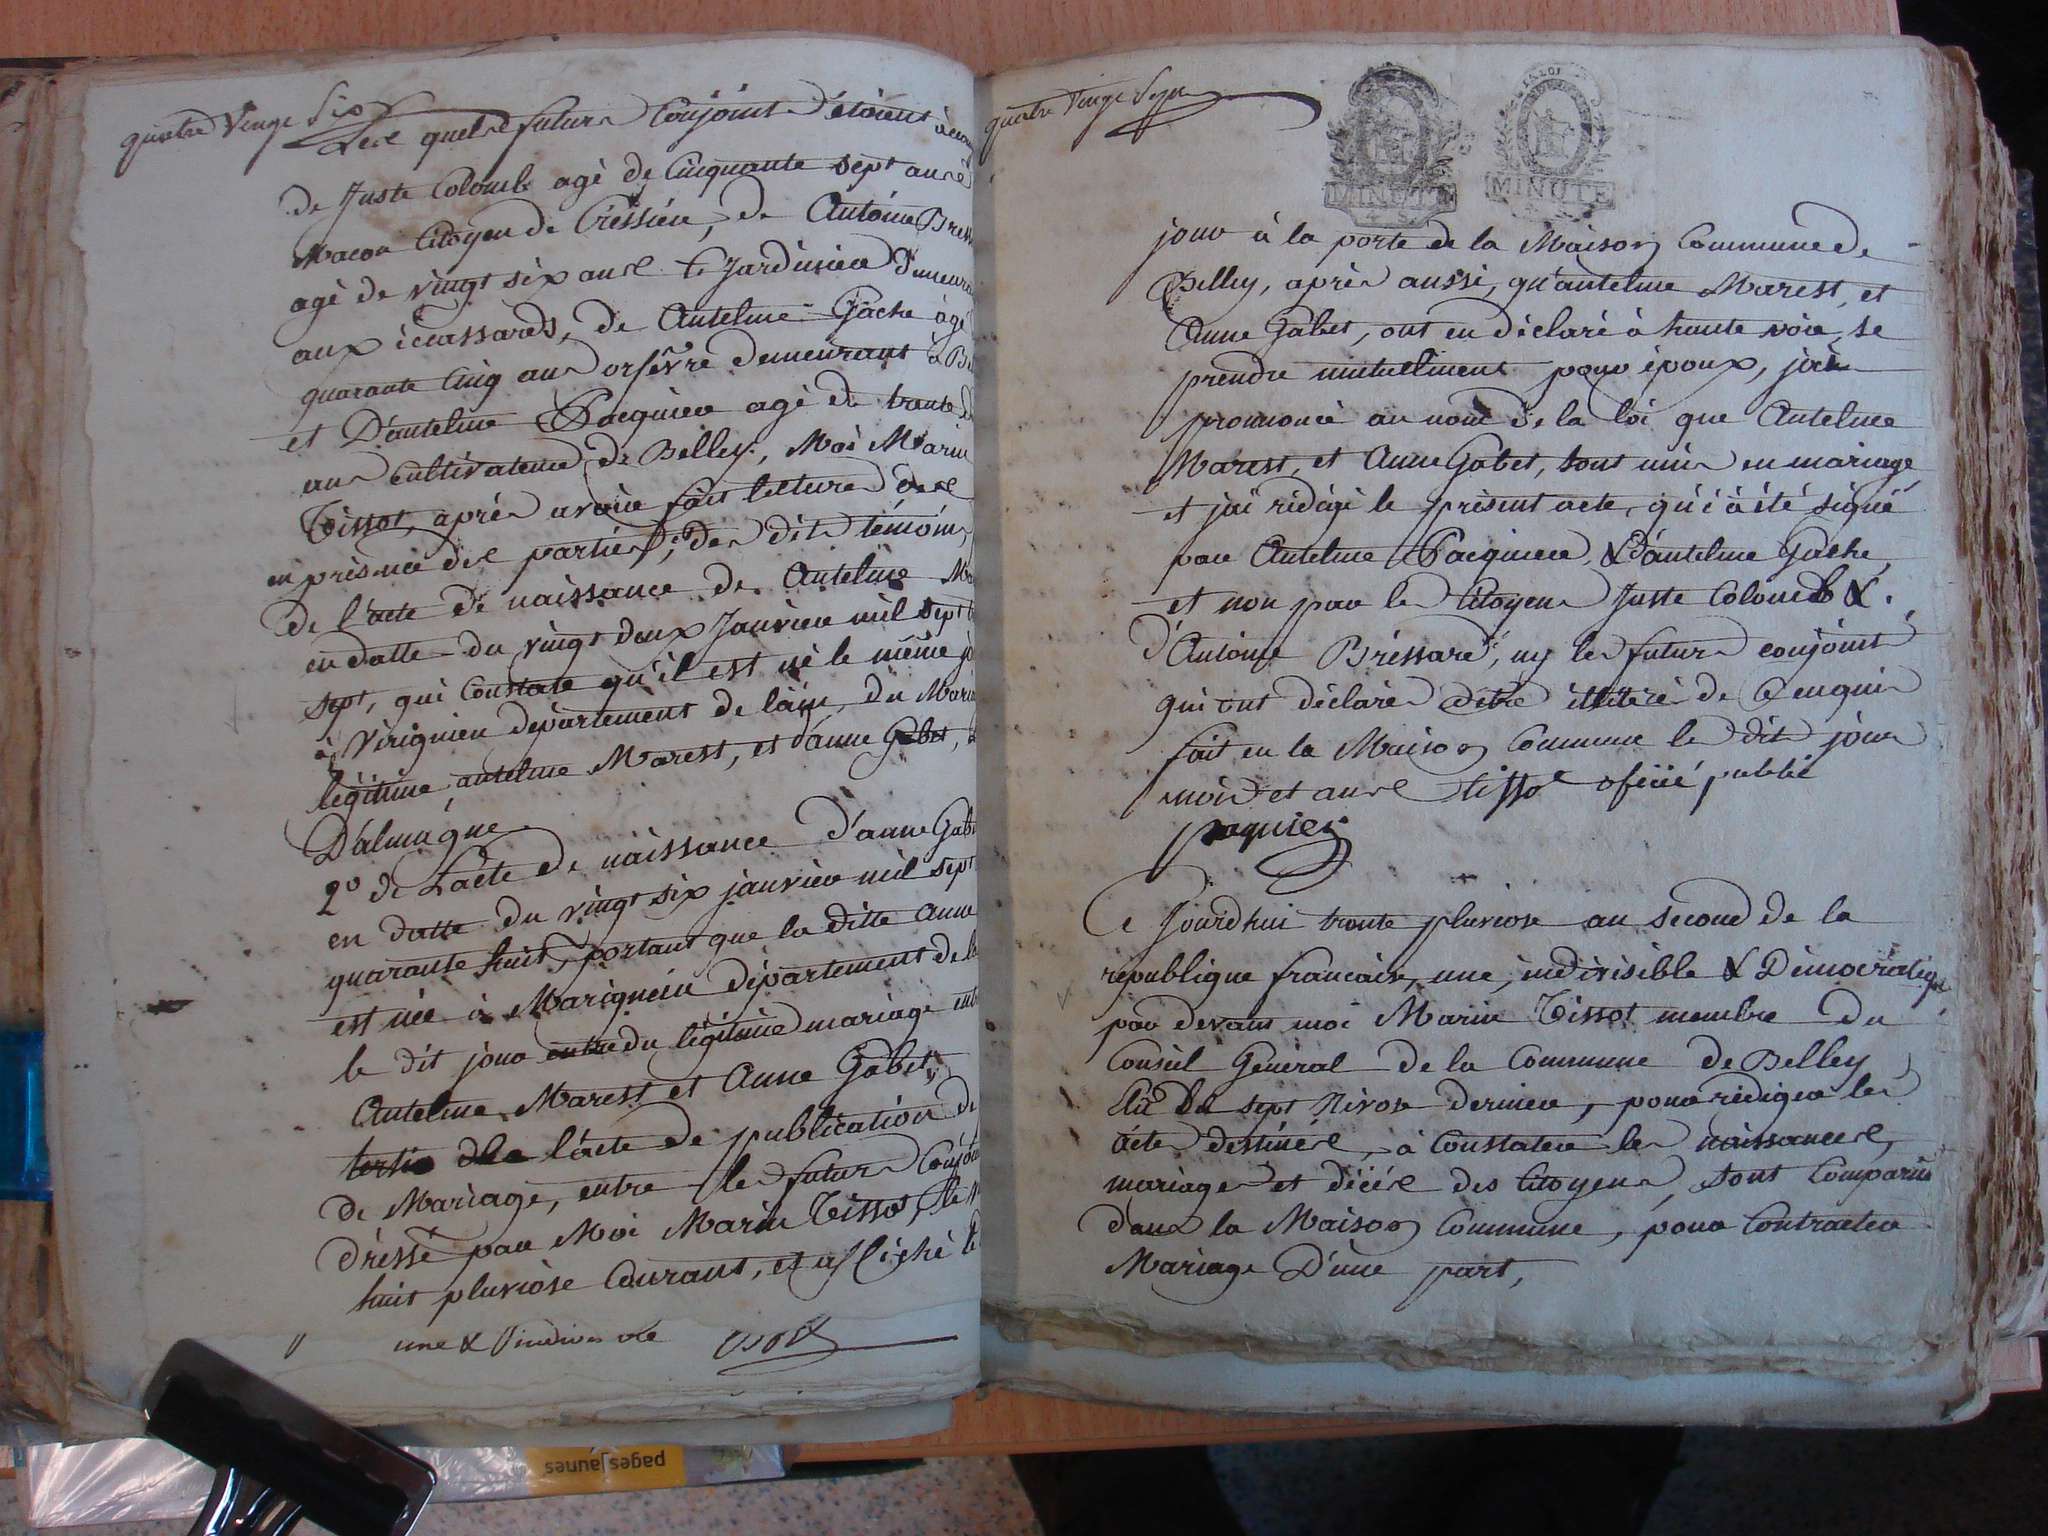 quatre Vingt Six
Les quels futurs Conjoints étoient
de Juste Colomb agé de Cinquante sept ans
Macon Citoyen de Cressieu, de Antoine Bress
agé de vingt six ans Jardinier Demeura
aux écassards, de Antelme Gache âgé
quarante Cinq ans orfèvre demeurant à Be
et D'antelme Pacquier agé de trente
ans Cultivateur de Belley, Moi Marin
Tissot, après avoir fait lecture
en présence des parties, des dits témoins,
de l'acte de naissance de Antelme Ma
en datte du vingt deux Janvier mil sept
sept, qui Constate qu'il est né le même jo
à Virignieu departement de l'ain, du Maria
légitime antelme Marest, et d'anne Gabet,
D'almagne
2º de L'acte de naissance d'anne Gabe
en datte du vingt six janvier mil sept
quarante huit, portant que la ditte anne
est née à Marignieu département de l
le dit jour entre du légitime mariage ent
Antelme Marest et Anne Gabet,
l'acte de publication de
de Mariage, entre les futurs Conjoi
dréssé par Moi Marin Tissot, le
huit pluviôse Courant, et affiché le
une &
quatre Vingt Sept
MINUTE
4 S
LA LOI
MINUTE
jour à la porte de la Maison Commune de
Belley, après aussi, qu'antelme Marest, et
Anne Gabet, ont en déclaré à haute voix, se
prendre mutuellment pour époux, jai
prononcé au nom de la loi que Antelme
Marest, et Anne Gabet, sont unis en mariage
et jai rédigé le présent acte, qui à été signé
par Antelme Pacquier, & d'antelme Gache,
et non par le Citoyen Juste Colomb &.
d'Antoine Bréssard, ny les futurs conjoint
qui ont déclaré être illitéré de Ce enquis
fait en la Maison Commune le dit jour
mois et an Tissot oficié public
paquier
Ce Jourdhui trente pluviose an second de la
république francaise, une, indivisible & Démocratiqe
par devant moi Marin Tissot membre du
Conseil Général de la Commune de Belley
Elu Du sept Nivose dernier, pour rédiger les
actes destinés, à Constater les naissances,
mariages et décés des Citoyens, sont Comparus
dans la Maison Commune, pour Contracter
Mariage D'une part,
pagesJaunes